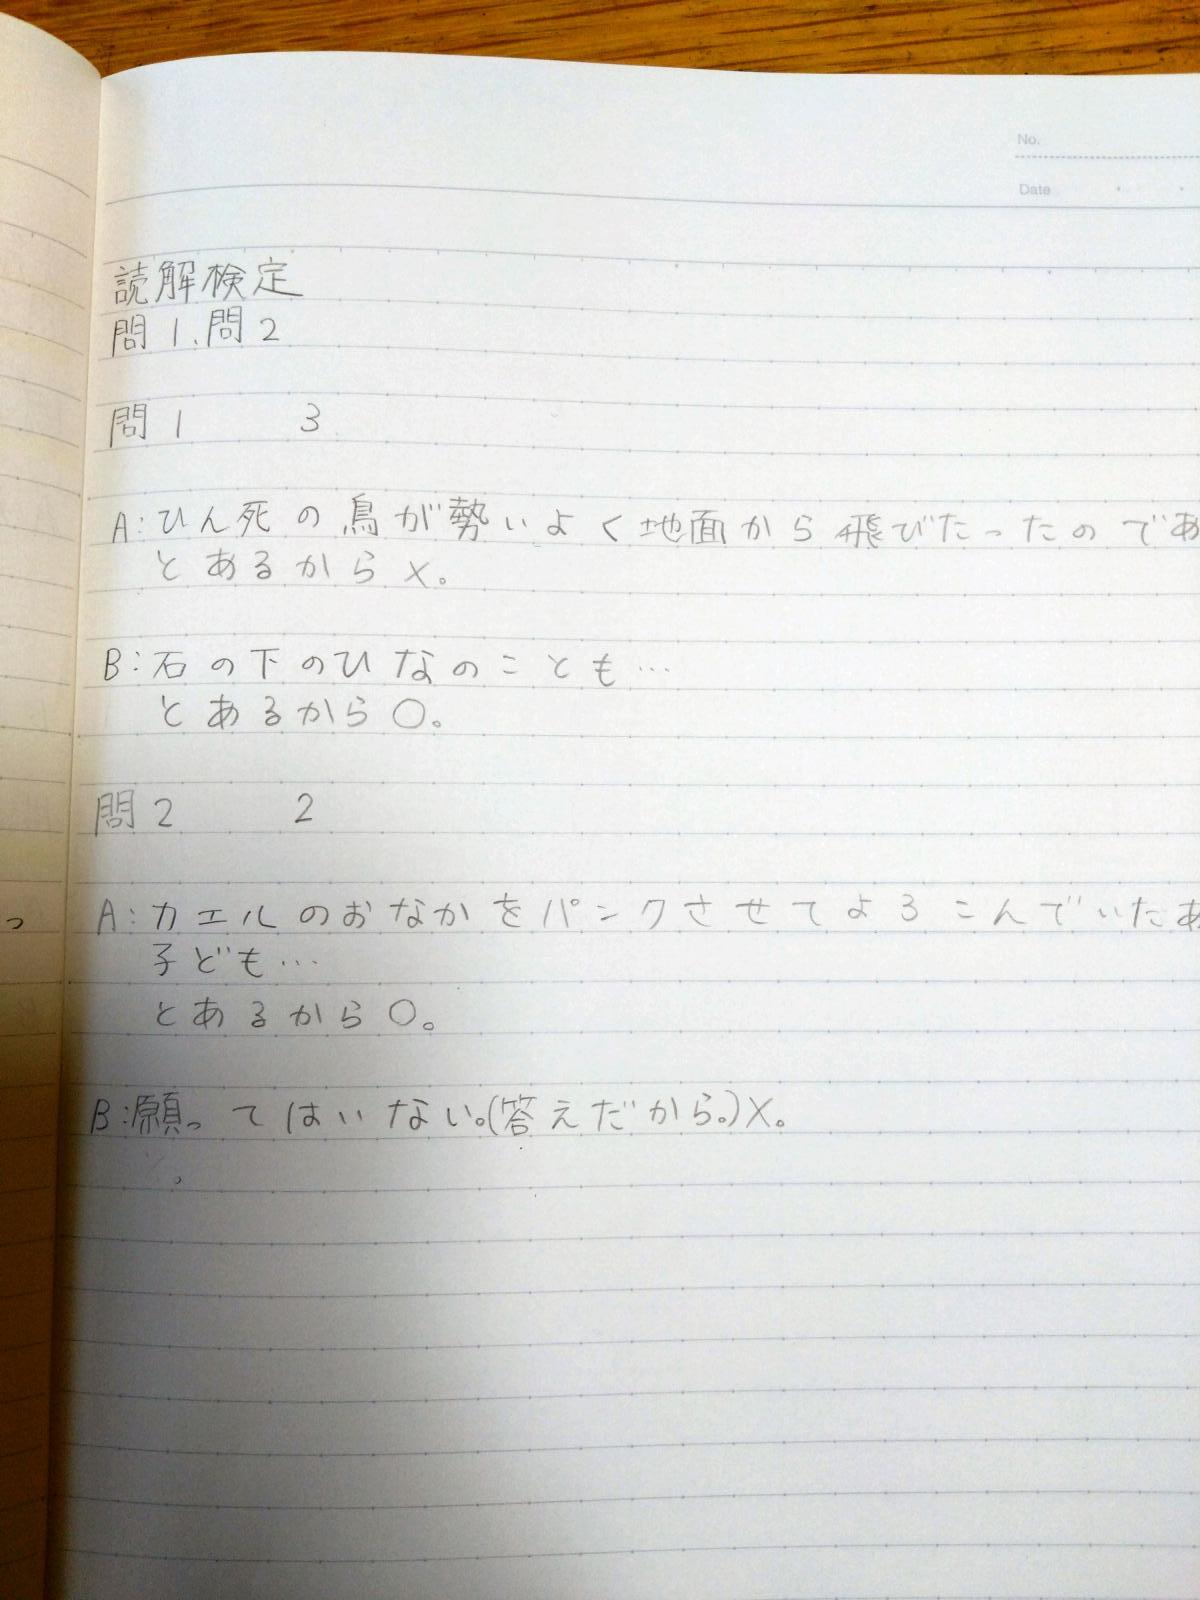 No.
Date
読解検定
問1、問2
問1 3
A:ひん死の鳥が勢いよく地面から飛びたったのであ
とあるから×。
B:石の下のひなのことも…
とあるから○。
問2 2
っ
A:カエルのおなかをパンクさせてよろこんでいたあ
子ども…
とあるから○。
B:願ってはいない。(答えだから。)×。